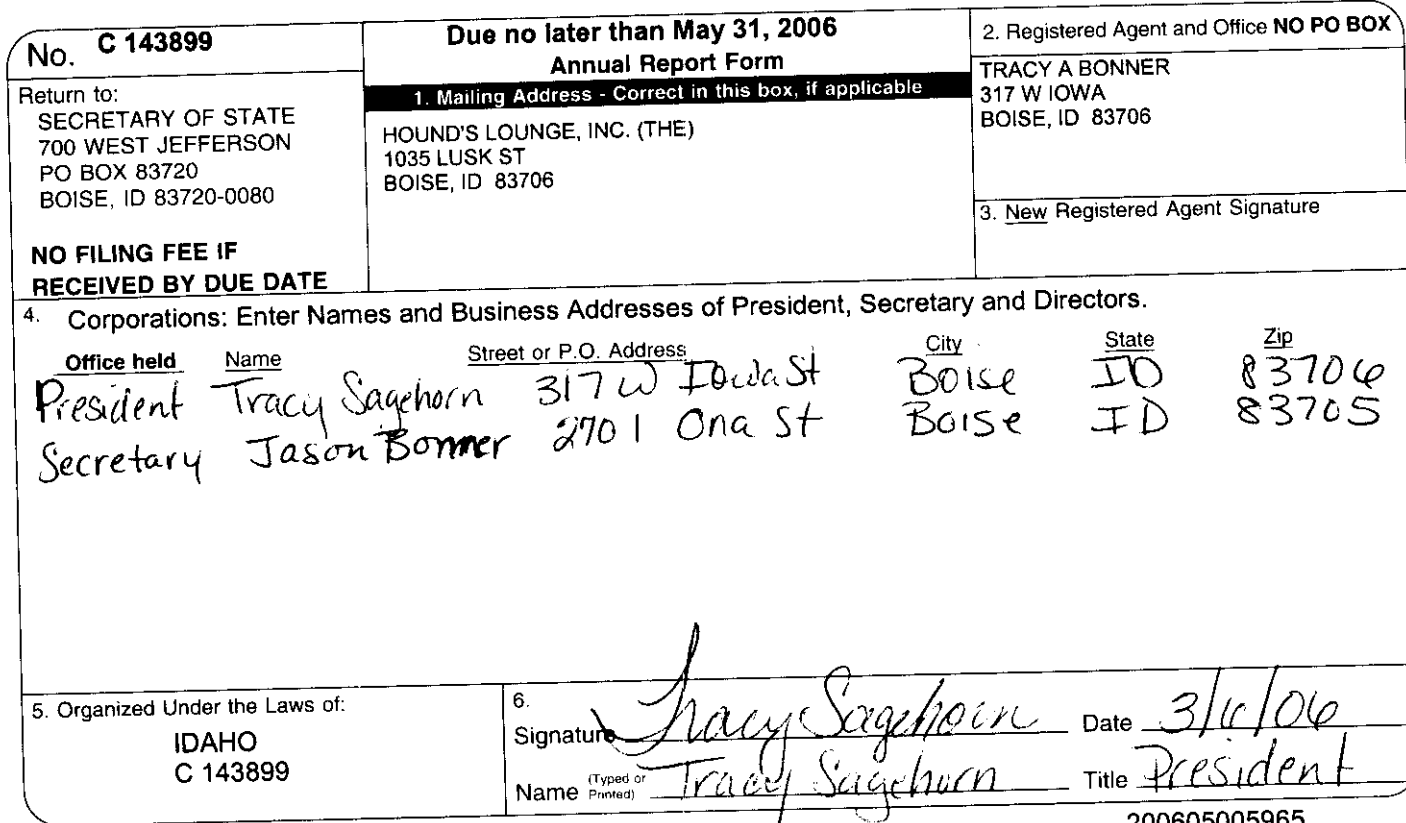 No. C 143899
Return to:
SECRETARY OF STATE
700 WEST JEFFERSON
PO BOX 83720
BOISE, ID 83720-0080
NO FILING FEE IF
RECEIVED BY DUE DATE
Due no later than May 31, 2006
Annual Report Form
1. Mailing Address - Correct in this box, if applicable
HOUND'S LOUNGE, INC. (THE)
1035 LUSK ST
BOISE, ID 83706
2. Registered Agent and Office NO PO BOX
TRACY A BONNER
317 W IOWA
BOISE, ID 83706
3. New Registered Agent Signature
4. Corporations: Enter Names and Business Addresses of President, Secretary and Directors.
Office held Name Street or P.O. Address City State Zip
President Tracy Sagehorn 317 W Iowa St Boise ID 83706
Secretary Jason Bonner 2701 Ona St Boise ID 83705
5. Organized Under the Laws of:
IDAHO
C 143899
6.
Signature Tracy Sagehorn Date
Name (Typed or Printed) Tracy Sagehorn Title President
200605005965